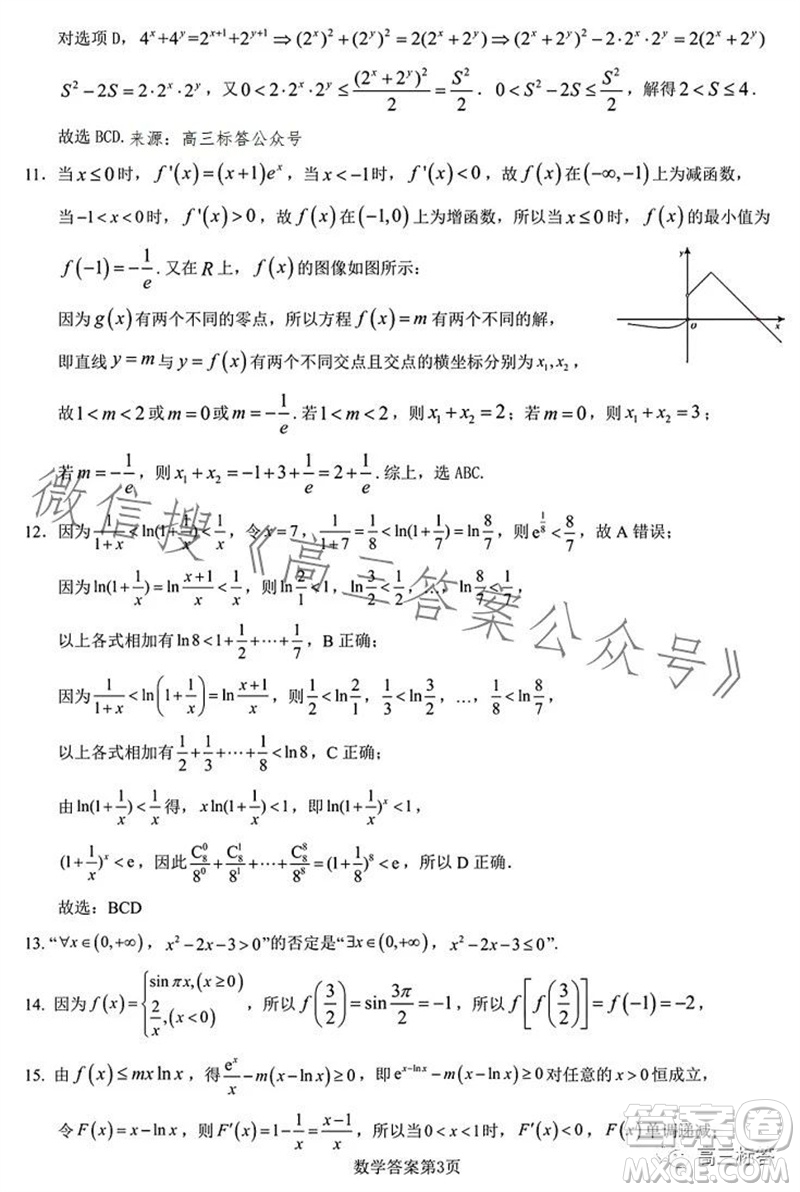 对选项D，4^x+4^y=2^{x+1}+2^{y+1}⇒(2^x)^2+(2^y)^2=2(2^x+2^y)⇒(2^x+2^y)^2-2·2^x·2^y=2(2^x+2^y)
S^2-2S=2·2^x·2^y，又0<2·2^x·2^y≤\frac{(2^x+2^y)^2}{2}=\frac{S^2}{2}．0<S^2-2S≤\frac{S^2}{2}，解得2<S≤4．
故选BCD. 来源：高三标答公众号
11．当x≤0时，f'(x)=(x+1)e^x，当x<-1时，f'(x)<0，故f(x)在(-∞,-1)上为减函数，
当-1<x<0时，f'(x)>0，故f(x)在(-1,0)上为增函数，所以当x≤0时，f(x)的最小值为
f(-1)=-\frac{1}{e}.又在R上，f(x)的图像如图所示：
y
O
x
因为g(x)有两个不同的零点，所以方程f(x)=m有两个不同的解，
即直线y=m与y=f(x)有两个不同交点且交点的横坐标分别为x_1,x_2，
故1<m<2或m=0或m=-\frac{1}{e}.若1<m<2，则x_1+x_2=2；若m=0，则x_1+x_2=3；
若m=-\frac{1}{e}，则x_1+x_2=-1+3+\frac{1}{e}=2+\frac{1}{e}.综上，选ABC.
12．因为\frac{1}{1+x}<ln(1+\frac{1}{x})<\frac{1}{x}，令x=7，\frac{1}{1+7}=\frac{1}{8}<ln(1+\frac{1}{7})=ln\frac{8}{7}，则e^{\frac{1}{8}}<\frac{8}{7}，故A错误；
因为ln(1+\frac{1}{x})=ln\frac{x+1}{x}<\frac{1}{x}，则ln\frac{2}{1}<1，ln\frac{3}{2}<\frac{1}{2}，…，ln\frac{8}{7}<\frac{1}{7}，
以上各式相加有ln8<1+\frac{1}{2}+⋯+\frac{1}{7}，B正确；
因为\frac{1}{1+x}<ln(1+\frac{1}{x})=ln\frac{x+1}{x}，则\frac{1}{2}<ln\frac{2}{1}，\frac{1}{3}<ln\frac{3}{2}，…，\frac{1}{8}<ln\frac{8}{7}，
以上各式相加有\frac{1}{2}+\frac{1}{3}+⋯+\frac{1}{8}<ln8，C正确；
由ln(1+\frac{1}{x})<\frac{1}{x}得，xln(1+\frac{1}{x})<1，即ln(1+\frac{1}{x})^x<1，
(1+\frac{1}{x})^x<e，因此\frac{C_8^0}{8^0}+\frac{C_8^1}{8^1}+⋯+\frac{C_8^8}{8^8}=(1+\frac{1}{8})^8<e，所以D正确．
故选：BCD
13.“∀x∈(0,+∞)，x^2-2x-3>0”的否定是“∃x∈(0,+∞)，x^2-2x-3≤0”.
14. 因为f(x)={sinπx,(x≥0) \frac{2}{x},(x<0)，所以f(\frac{3}{2})=sin\frac{3π}{2}=-1，所以f[f(\frac{3}{2})]=f(-1)=-2，
15. 由f(x)≤mxlnx，得\frac{e^x}{x}-m(x-lnx)≥0，即e^{x-lnx}-m(x-lnx)≥0对任意的x>0恒成立，
令F(x)=x-lnx，则F'(x)=1-\frac{1}{x}=\frac{x-1}{x}，当0<x<1时，F'(x)<0，F(x)单调递减；
数学答案第3页
微信搜《高三答案公众号》
答案圈
MXQE.COM
高三标答